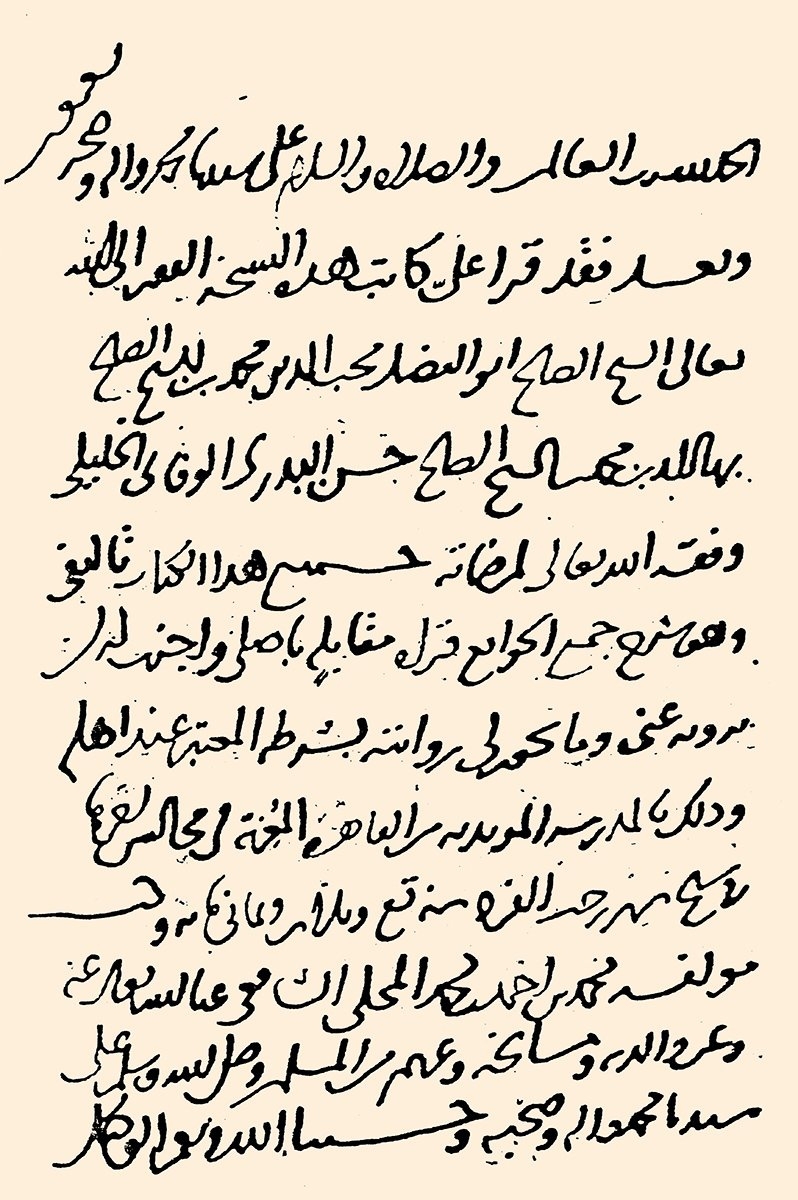 الحمد لله رب العالمين والصلاة والسلام على سيدنا محمد واله وصحبه
وبعد فقد قرا علي كاتب هذه النسخة الفقير الى الله
تعالى الشيخ الصالح ابو الفضل محب الدين محمد بن الشيخ الصالح
بها الدين محمد بن الشيخ الصالح حسن البدري الوفائي الخليلي
وفقه الله تعالى لمرضاته جميع هذا الكتاب تاليفي
وهو شرح جمع الجوامع قراة مقابلة باصلي واجزت له ان
يرويه عني وما يجوز لي روايته بشرطه المعتبر عند اهله
وذلك بالمدرسة المويدية من القاهرة المعزية في مجالس اخرها
تاسع شهر رجب الفرد سنة تسع وثلاثين وثماني ماية وكتب
مولفه محمد بن احمد بن محمد المحلي الشافعي عفا الله تعالى عنه
وعن والديه ومشايخه وعنهم من المسلمين وصلى الله وسلم على
سيدنا محمد واله وصحبه وحسبنا الله ونعم الوكيل